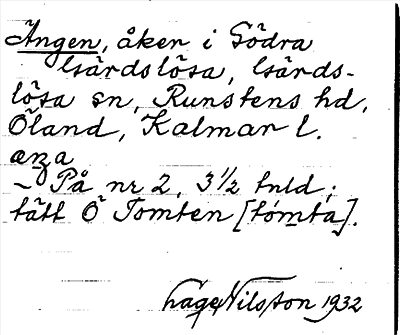 Ängen, åker i Södra
Gärdslösa, Gärds-
lösa sn, Runstens hd,
Öland, Kalmar l.
æŋa
~ På nr 2, 3½ tnld;
tätt Ö Tomten [tómta].
Hage Nilsson 1932